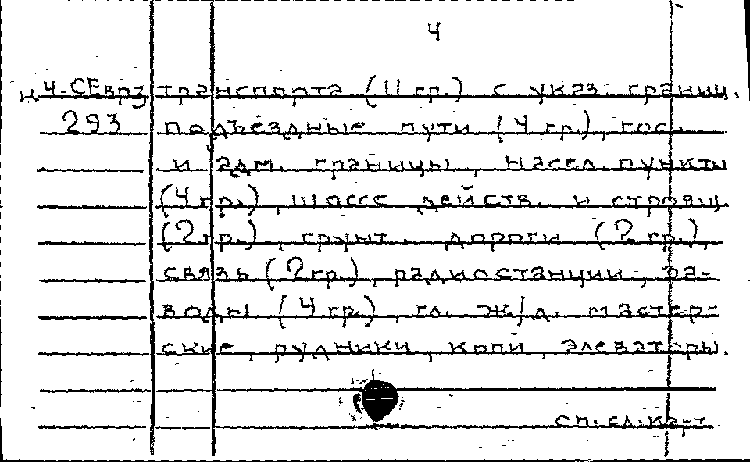 4
ц.4-СЕврз транспорта (11 гр.) с указ. границ.
293 подъездные пути (4 гр.), гос.
и адм. границы, насел. пункты
(4 гр.), шоссе действ. и строящ.
(2 гр.), грунт. дороги (2 гр.),
связь (2 гр.), радиостанции, за-
воды (4 гр.), гл. ж/д. мастер-
ские, рудники, копи, элеваторы.
см.сл.карт